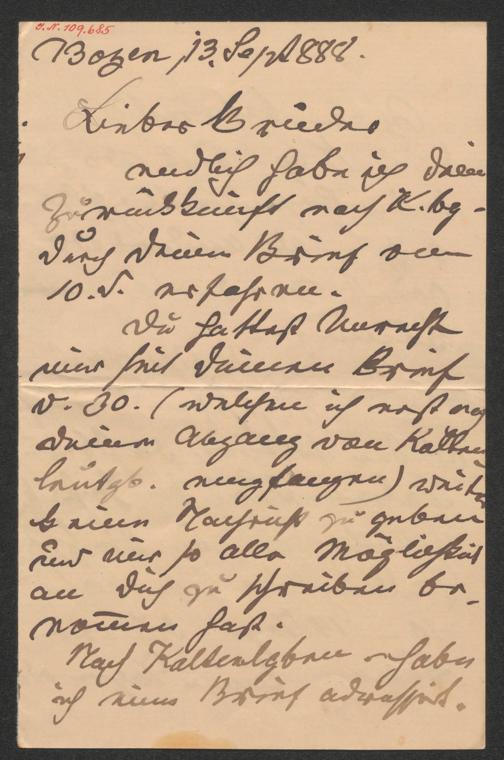 J.N. 109.685
Bozen, 13. Sept 888.
Lieber Bruder
endlich habe ich deine
Zurückkunft nach K.bg-
durch deinen Brief vom
10. d. erfahren.
Du hattest Unrecht
mir seit deinem Brief
v. 30. (welchen ich erst
deinem Abgang von Kalten
leutgb. empfangen) weiter
keine Nachricht zu geben
und mir so alle Möglichkeit
an dich zu schreiben be-
nommen hast.
Nach Kaltenlgben habe
ich einen Brief adressirt.